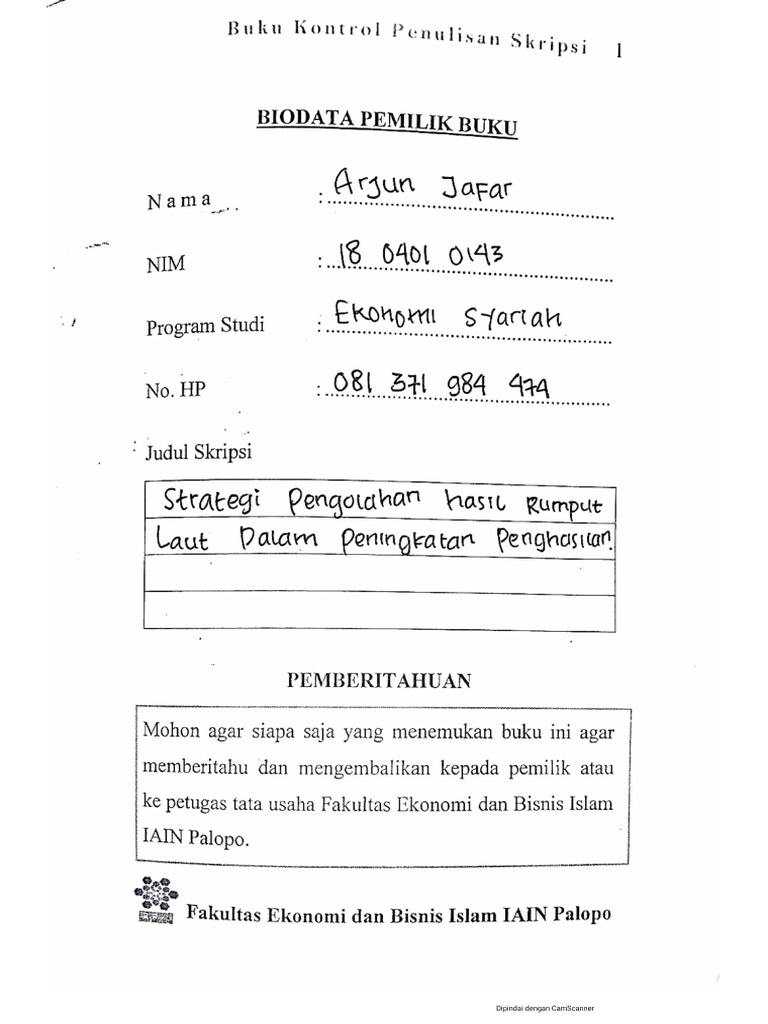 Buku Kontrol Penulisan Skripsi 1
BIODATA PEMILIK BUKU
Nama : Arjun Jafar
NIM : 18 0401 0143
Program Studi : Ekonomi Syariah
No. HP : 081 371 984 474
Judul Skripsi
Strategi Pengolahan hasil Rumput
Laut Dalam Peningkatan Penghasilan.
PEMBERITAHUAN
Mohon agar siapa saja yang menemukan buku ini agar
memberitahu dan mengembalikan kepada pemilik atau
ke petugas tata usaha Fakultas Ekonomi dan Bisnis Islam
IAIN Palopo.
Fakultas Ekonomi dan Bisnis Islam IAIN Palopo
Dipindai dengan CamScanner